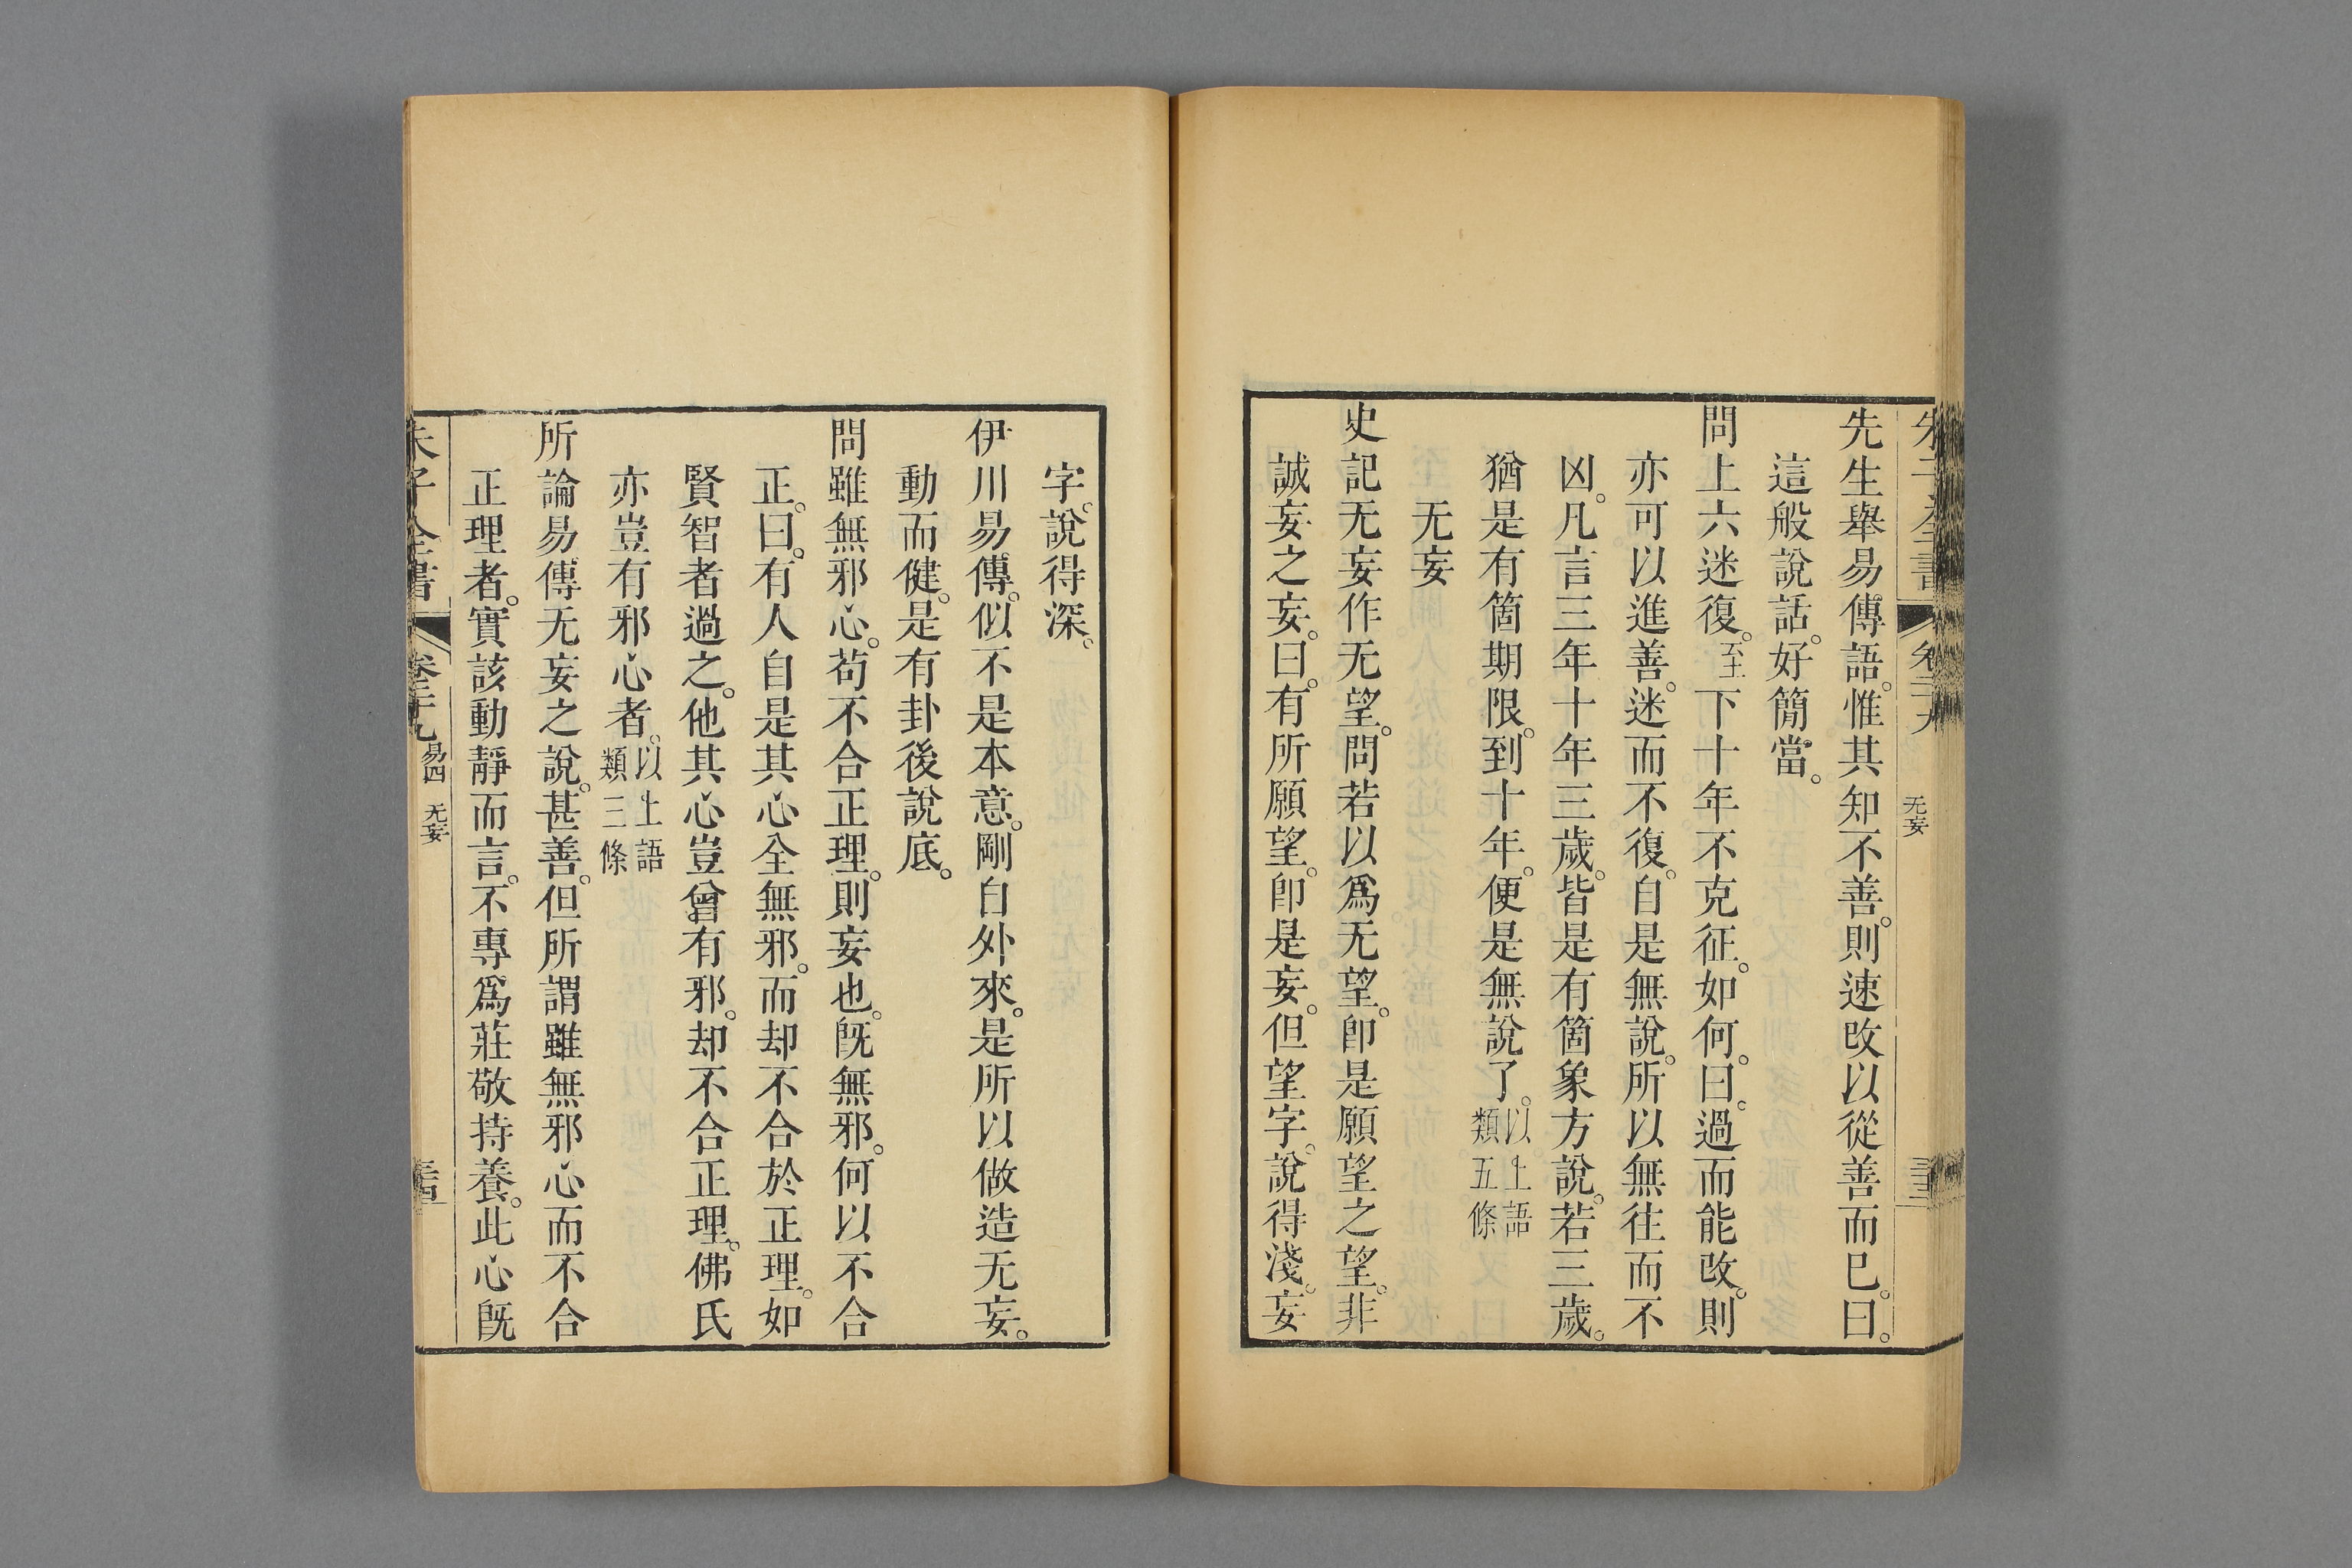 无妄
先生舉易傳語。惟其知不善。則速改以從善而已。曰。
這般說話。好簡當。
問上六迷復。至下十年不克征。如何。曰。過而能改。則
亦可以進善。迷而不復。自是無說。所以無往而不
凶。凡言三年十年三歲。皆是有箇象方說。若三歲。
猶是有箇期限。到十年。便是無說了。以上語類五條
无妄
史記无妄作无望。問若以爲无望。卽是願望之望。非
誠妄之妄。曰。有所願望。卽是妄。但望字。說得淺。妄
字。說得深。
伊川易傳。似不是本意。剛自外來。是所以做造无妄。
動而健。是有卦後說底。
問雖無邪心。苟不合正理。則妄也。旣無邪。何以不合
正。曰。有人自是其心全無邪。而却不合於正理。如
賢智者過之。他其心豈曾有邪。却不合正理。佛氏
亦豈有邪心者。以上語類三條
所論易傳无妄之說。甚善。但所謂雖無邪心而不合
正理者。實該動靜而言。不專爲莊敬持養。此心旣
朱子全書 卷二十九 易四 无妄